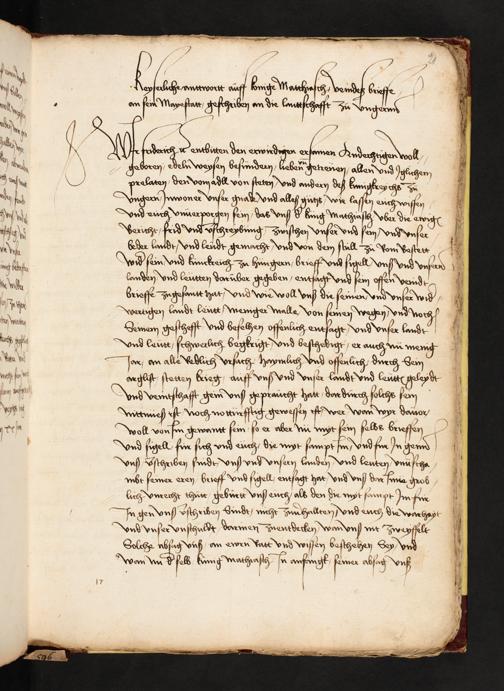 Keyserliche anttwortt auff konig Mathiasch veindes brieffe
an sein Mayestatt geschriben an die lanttschafft zu ungernn
Wir friderich etc entbieten den erwirdigen ersamen Andechtigen woll
geboren edeln weysen besundern lieben getrewen allen und yglichen
prelaten den vom adll von stetten und andern des kunigkreychs zu
ungern Inwoner unser gnade und alles gutz wir lassen euch wissen
und euch unverporgen sein das uns d kunig Mathiasch uber die ewig
bericht frid und vschreybung zwischen unser und sein und unser
beder landt und leudt gemacht und von dem stull zu Rom bestett
und sein und kunckreich zu hungern brieff und sigell uns und unsern
landen und leutten daruber gegeben entsagt und sein offen veindt
brieffe zugesantt hatt und wie woll uns die seinen und unser wid
wertigen landt leutt meniger malle von seinen wegen und noch
Seinem gescheft und bevelhen offenlich entsagt und unser landt
und leutt schwerlich bekrigt und beschedigt er auch nu menig
Jar an alle Redlich ursach haymlich und offenlich durch sein
arglist stetten krieg auff uns und unser landt und leutt geleydt
und veintschafft gein uns gepraucht hatt dardurch solche sein
nottorfftig gewessen ist wer wir wye davor
woll von Im gewontt sein so er aber nu myt sein selbs brieffen
und sigell fur sich und euch die myt sampt Im und fur In gein
uns vschriben sindt uns und unsern landen und leuten
seiner eren brieff und sigell entsagt hatt und uns dar Inne grob
lich unrecht thutt geburtt uns euch als den die myt sampt Im fur
In gen uns vschriben sindt nicht zuverhalten und euch die warhayt
und unser unschuldt darinnen zuentdecken wan uns nit zweyffelt
Solche absag uns an ewrn Ratt und wissen beschehen sey und
wan nu d selb kunig mathiasch In anfangk seiner absag uns
17